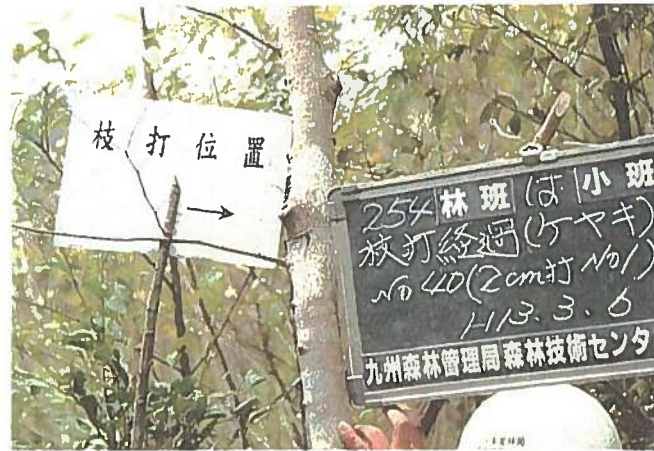 枝打位置
→
254 林班 は 小班
枝打経過(ケヤキ)
No 40(2cm打 No1)
H13.3.6
九州森林管理局森林技術センタ